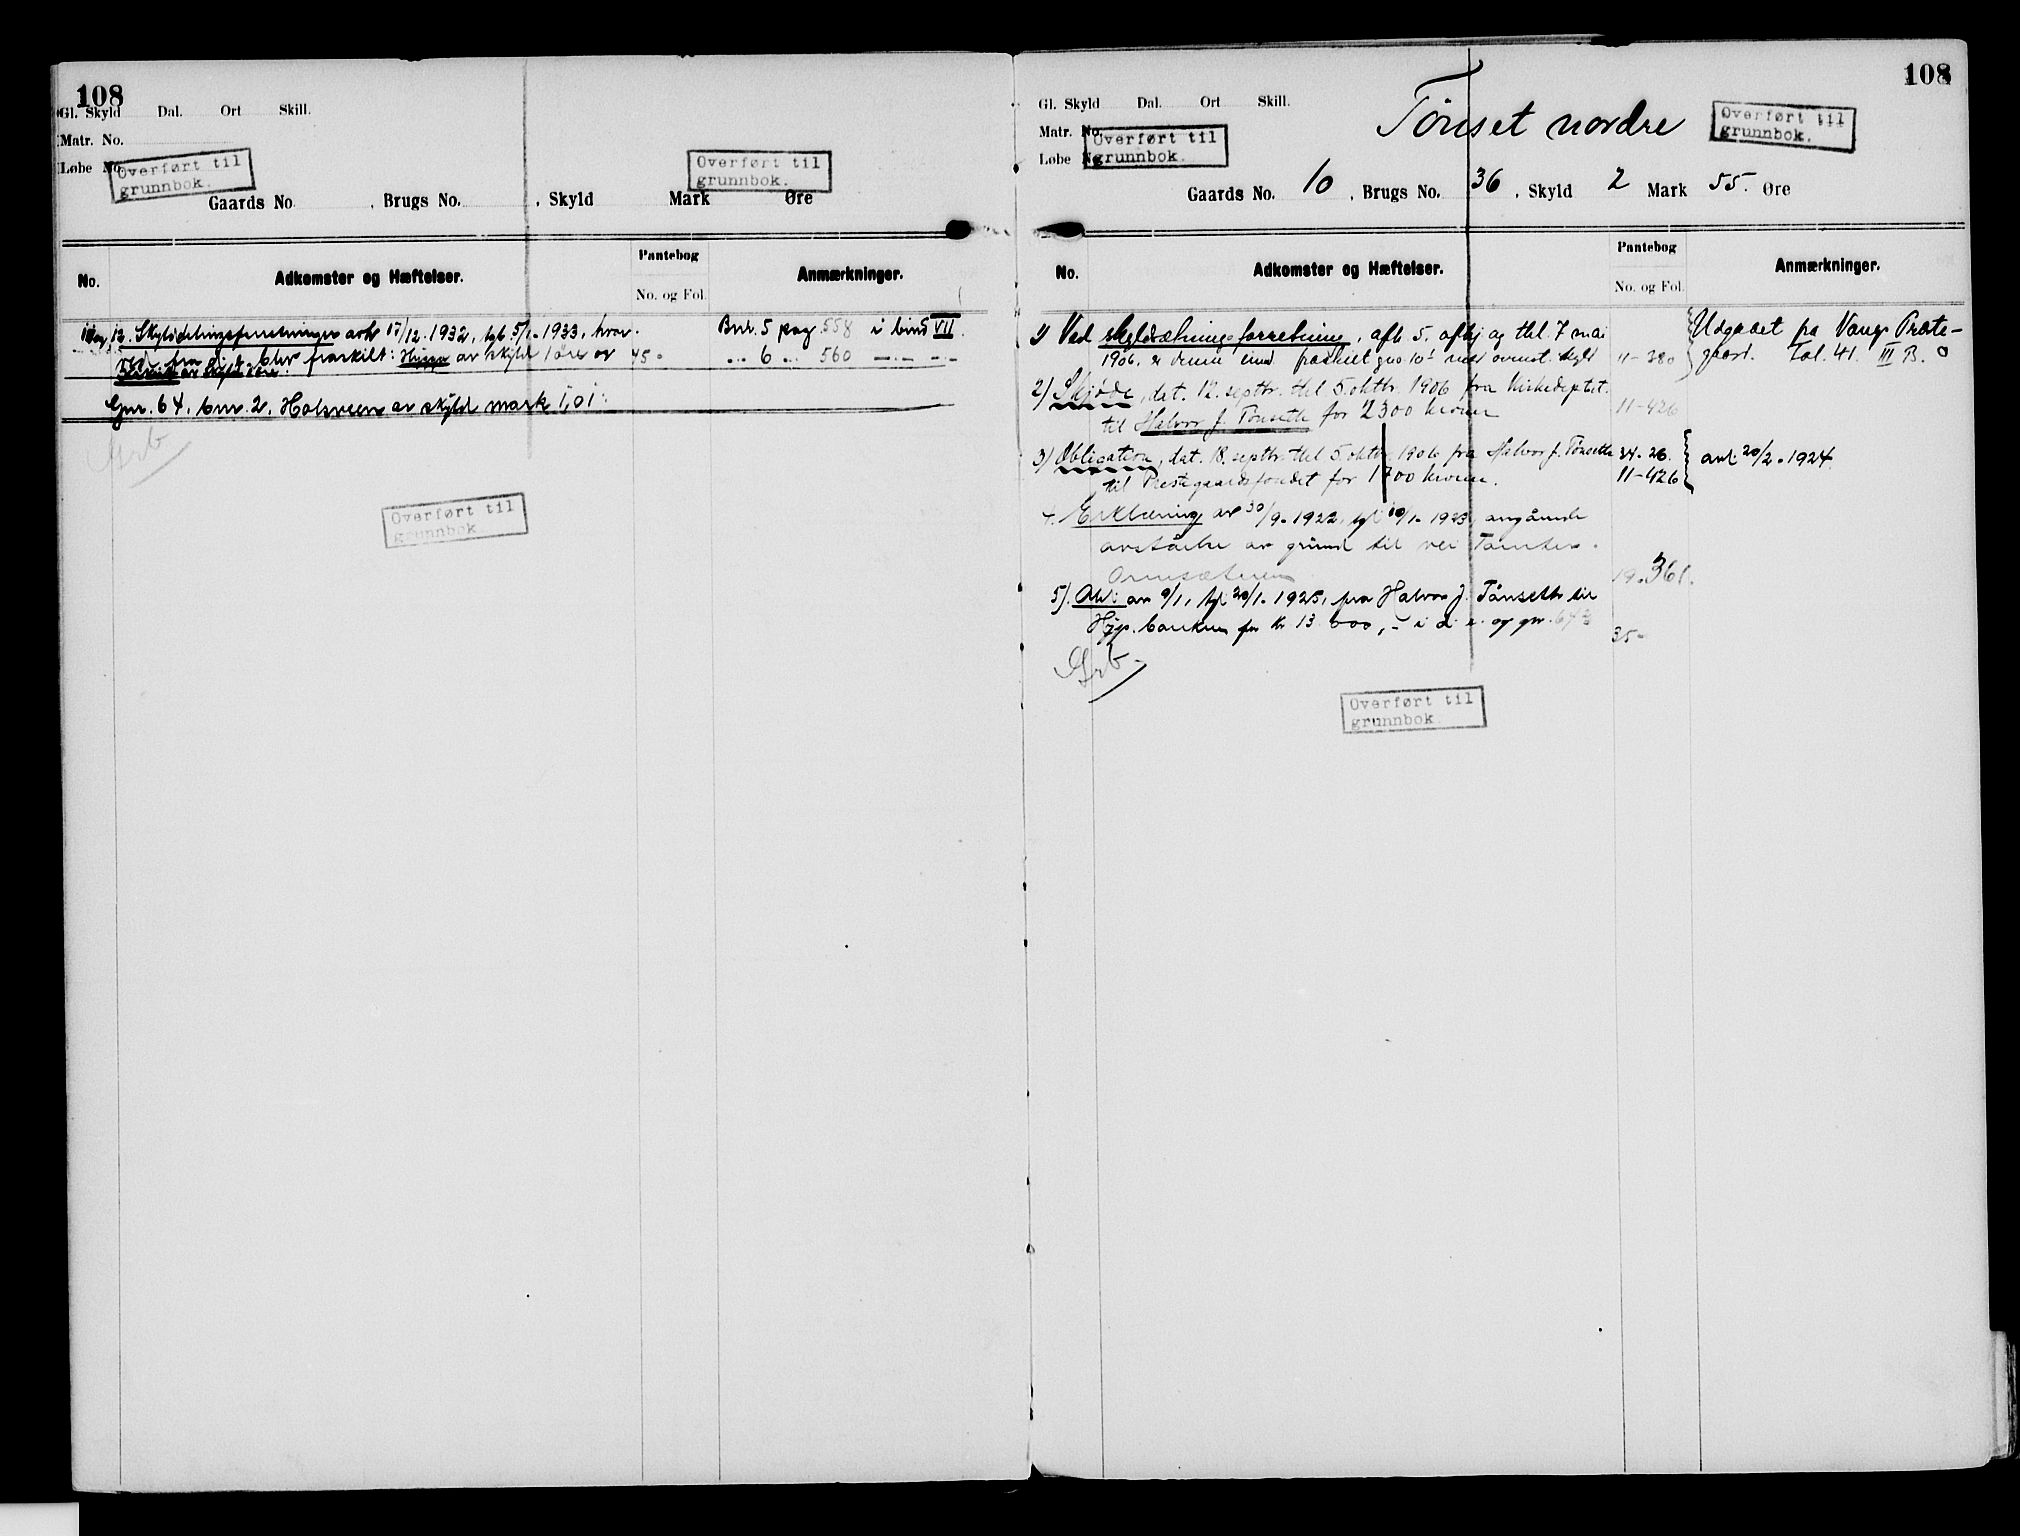 108
Gl. Skyld Dal. Ort Skill.
Matr. No.
Løbe No.
Overført til
grunnbok.
Overført til
grunnbok.
Gaards No. , Brugs No. , Skyld Mark Øre
No. Adkomster og Hæftelser. Pantebog No. og Fol. Anmærkninger.
12. Skylddelingsforretninger avh 17/12. 1932, tgl. 5/1. 1933, hvor-
ved fra blev fraskilt: av skyld 1 øre og 45.
av skyld øre
Bnr. 5 pag. 558 i bind VII.
" 6 " 560 — " —
Gnr. 64, bnr. 2, Holsveen av skyld mark 1,01:
Grb
Overført til
grunnbok.
108
Gl. Skyld Dal. Ort Skill.
Matr. No.
Løbe No.
Overført til
grunnbok.
Tønset nordre
Overført til
grunnbok.
Gaards No. 10 , Brugs No. 36 , Skyld 2 Mark 55. Øre
No. Adkomster og Hæftelser. Pantebog No. og Fol. Anmærkninger.
1) Ved skyldsætningsforretning, afh. 5. og thl. 7 mai
1906, er denne eiend fraskilt gno 10 med ovennt. skyld 11-380
Udgaaet fra Vangs Præste-
gaard. Fol. 41. III B.
2) Skjøde, dat. 12. septbr. thl 5. oktbr. 1906 fra Kirkedeptet.
til Halvor J. Tønseth for 2300 kroner 11-426
3) Obligation, dat. 18. septbr. thl 5. oktbr. 1906 fra Halvor J. Tønseth 34-26.
til Præstegaardsfondet for 1700 kroner. 11-426
avl. 20/2. 1924.
4. Erklæring av 30/9. 1922, tgl. 10/1. 1923, angående
avståelse av grund til vei
19. 361.
5). Obl. av 9/1, tgl. 20/1. 1925, fra Halvor J. Tønseth til
Hyp. banken for kr 13 000,- i d. e. og gnr. 64 35-
Grb.
Overført til
grunnbok.